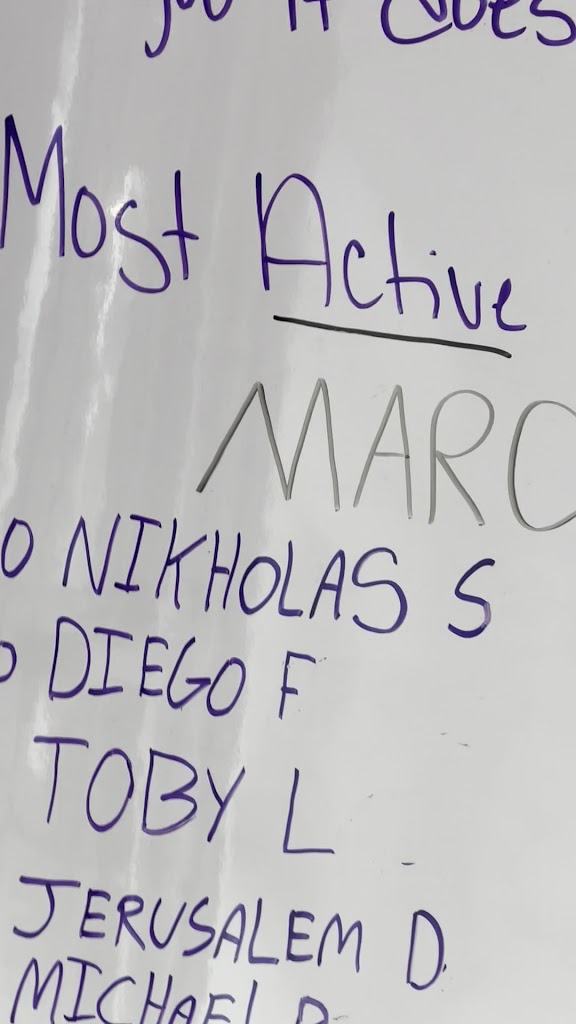 Most Active
MARC
O NIKHOLAS S
DIEGO F
TOBY L
JERUSALEM D.
MICHAEL